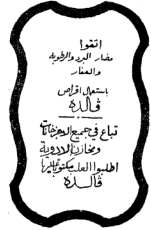 اتقوا
مضار البرد والرطوبة
والغبار
باستعمال اقراص
ڤالدة
تباع في جميع الاجزاخانات
ومخازن الادوية
اطلبوا العلب مكتوب عليها
ڤالدة